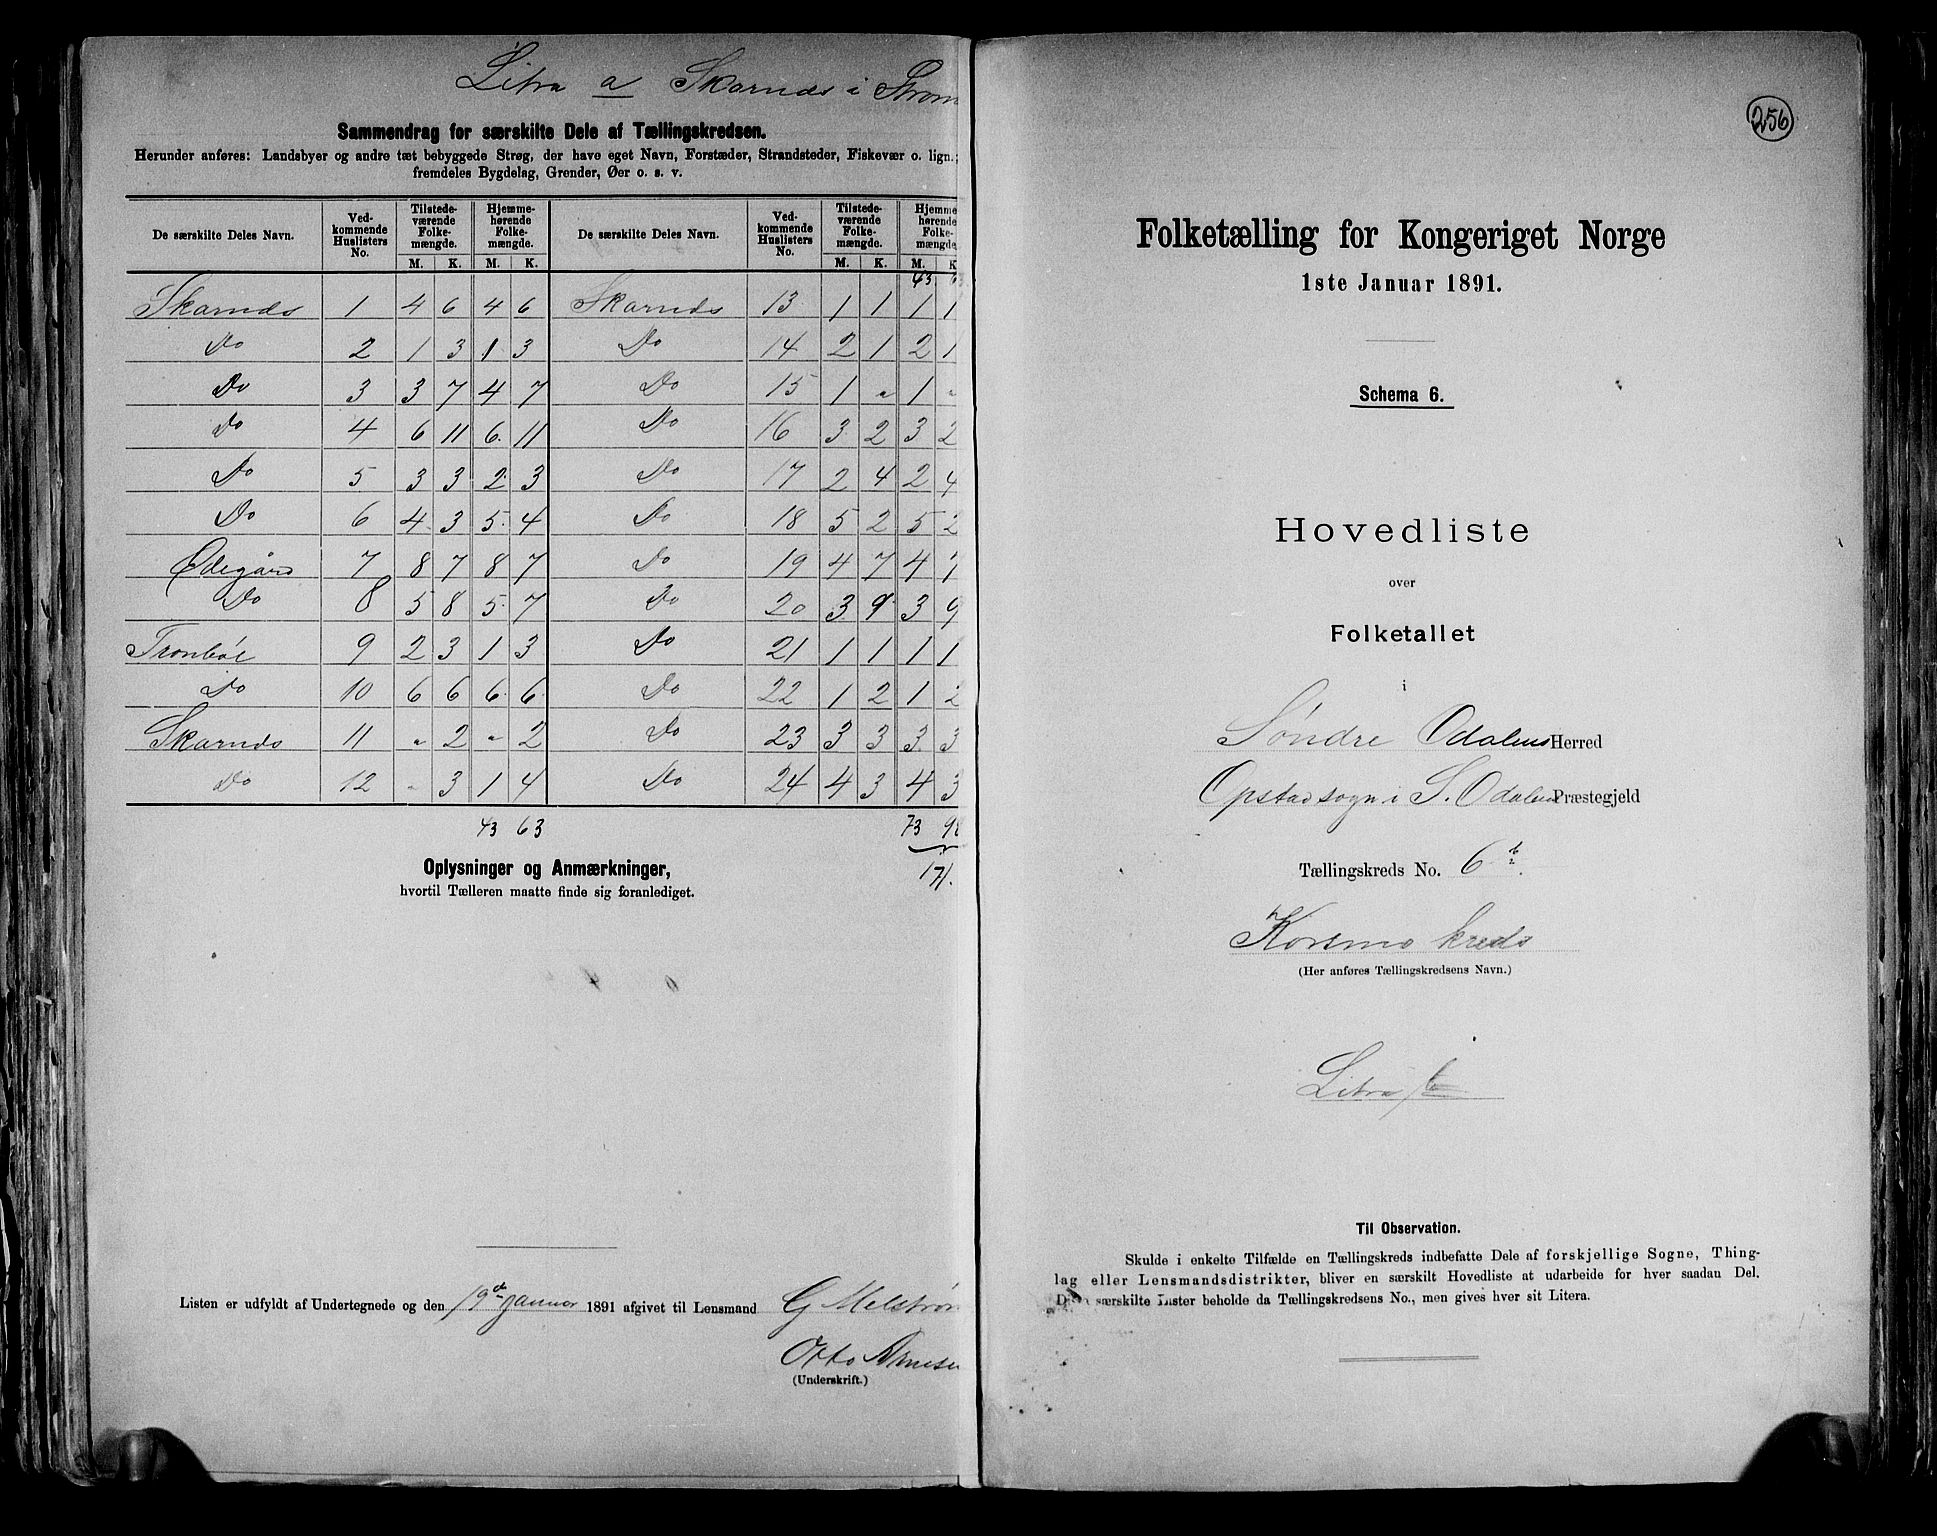 Litra a Skarnds i Strøm
Sammendrag for særskilte Dele af Tællingskredsen.
Herunder anføres: Landsbyer og andre tæt bebyggede Strøg, der have eget Navn, Forstæder, Strandsteder, Fiskevær o. lign.;
fremdeles Bygdelag, Grender, Øer o. s. v.
De særskilte Deles Navn. Ved-kommende Huslisters No. Tilstede-værende Folke-mængde. Hjemme-hørende Folke-mængde. De særskilte Deles Navn. Ved-kommende Huslisters No. Tilstede-værende Folke-mængde. Hjemme-hørende Folke-mængde.
M. K. M. K. M. K. M. K
43 63
Skarnds 1 4 6 4 6 Skarnds 13 1 1 1 1
Do 2 1 3 1 3 Do 14 2 1 2 1
Do 3 3 7 4 7 Do 15 1 " 1 "
Do 4 6 11 6 11 Do 16 3 2 3 2
Do 5 3 3 2 3 Do 17 2 4 2 4
Do 6 4 3 5 4 Do 18 5 2 5 2
Ødegård 7 8 7 8 7 Do 19 4 7 4 7
Do 8 5 8 5 7 Do 20 3 9 3 9
Tronbøl 9 2 3 1 3 Do 21 1 1 1 1
Do 10 6 6 6 6 Do 22 1 2 1 2
Skarnds 11 " 2 " 2 Do 23 3 3 3 3
Do 12 " 3 1 4 Do 24 4 3 4 3
43 63 73 98
171.
Oplysninger og Anmærkninger,
hvortil Tælleren maatte finde sig foranlediget.
Listen er udfyldt af Undertegnede og den 19de Januar 1891 afgivet til Lensmand G Melstrøm
Otto Arnesen
(Underskrift.)
256
Folketælling for Kongeriget Norge
1ste Januar 1891.
Schema 6.
Hovedliste
over
Folketallet
i
Søndre Odalens Herred
Opstad sogn i S. Odalens Præstegjeld
Tællingskreds No. 6 b.
Korsmo kreds
(Her anføres Tællingskredsens Navn.)
Litra b
Til Observation.
Skulde i enkelte Tilfælde en Tællingskreds indbefatte Dele af forskjellige Sogne, Thing-
lag eller Lensmandsdistrikter, bliver en særskilt Hovedliste at udarbeide for hver saadan Del.
De særskilte Lister beholde da Tællingskredsens No., men gives hver sit Litera.